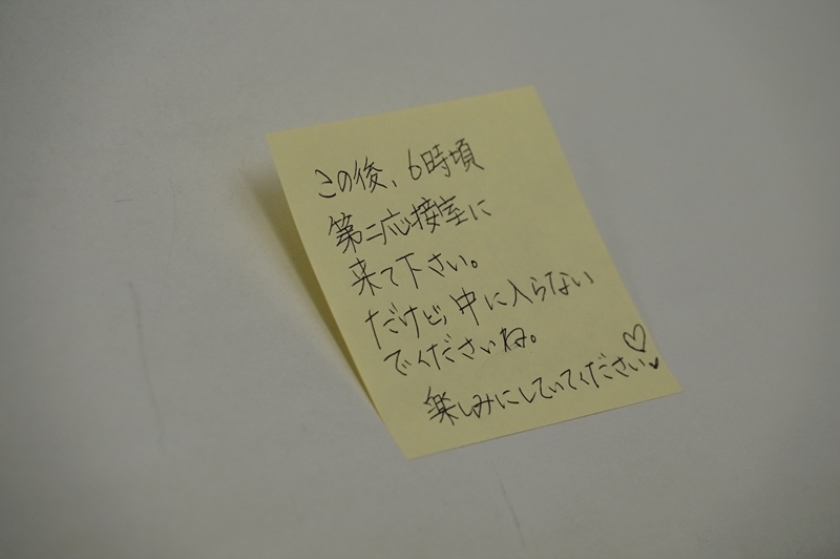 この後、6時頃
第二応接室に
来て下さい。
だけど、中に入らない
でくださいね。
楽しみにしていてください♡